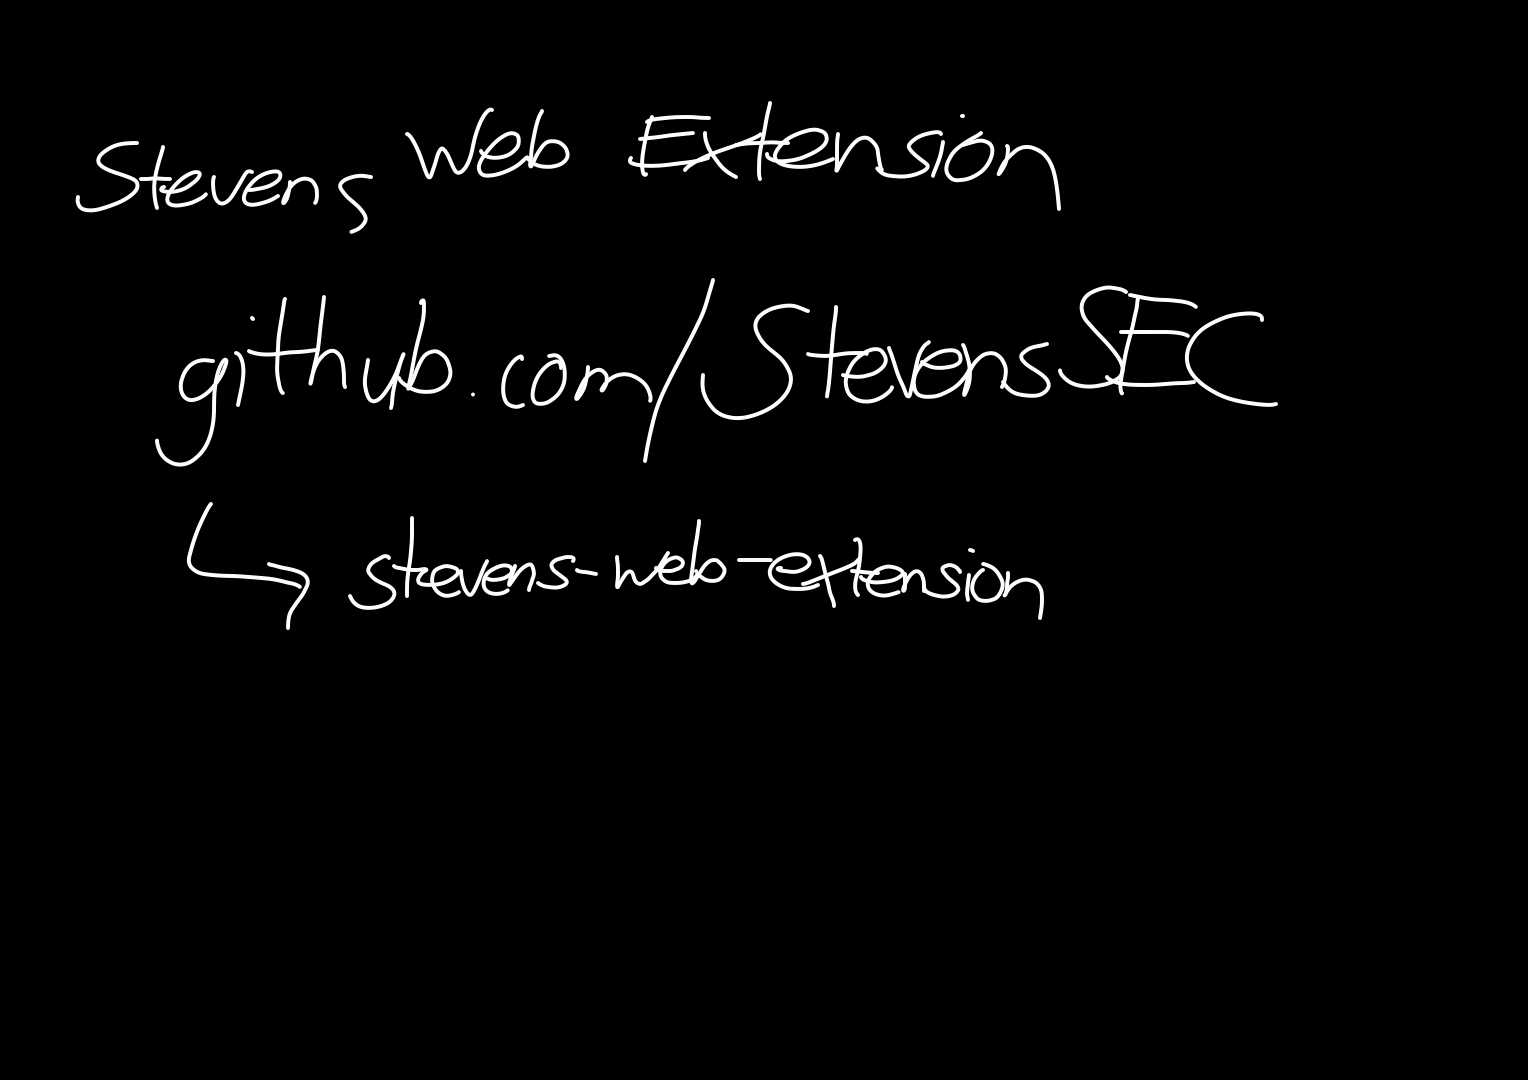 Stevens Web Extension
github.com/StevensSEC
↳ stevens-web-extension